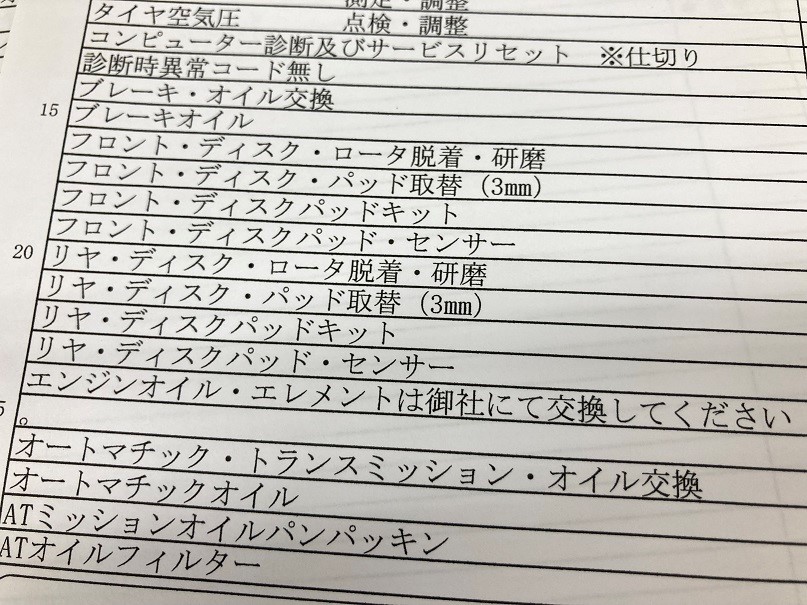 測定・調整
タイヤ空気圧 点検・調整
コンピューター診断及びサービスリセット ※仕切り
診断時異常コード無し
ブレーキ・オイル交換
15 ブレーキオイル
フロント・ディスク・ロータ脱着・研磨
フロント・ディスク・パッド取替 (3mm)
フロント・ディスクパッドキット
フロント・ディスクパッド・センサー
20 リヤ・ディスク・ロータ脱着・研磨
リヤ・ディスク・パッド取替 (3mm)
リヤ・ディスクパッドキット
リヤ・ディスクパッド・センサー
エンジンオイル・エレメントは御社にて交換してください
。
オートマチック・トランスミッション・オイル交換
オートマチックオイル
ATミッションオイルパンパッキン
ATオイルフィルター